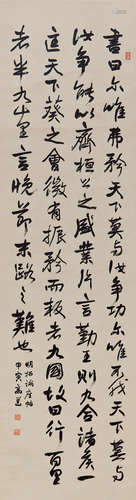 書曰尔唯弗矜天下莫与汝争功尔唯不伐天下莫与
汝争能以齊桓之盛業片言勤王則九合諸侯一
匡天下葵之會微有振矜而叛者九國故曰行百里
者半九十里言晚節末路之難也
明拓論座帖
甲寅